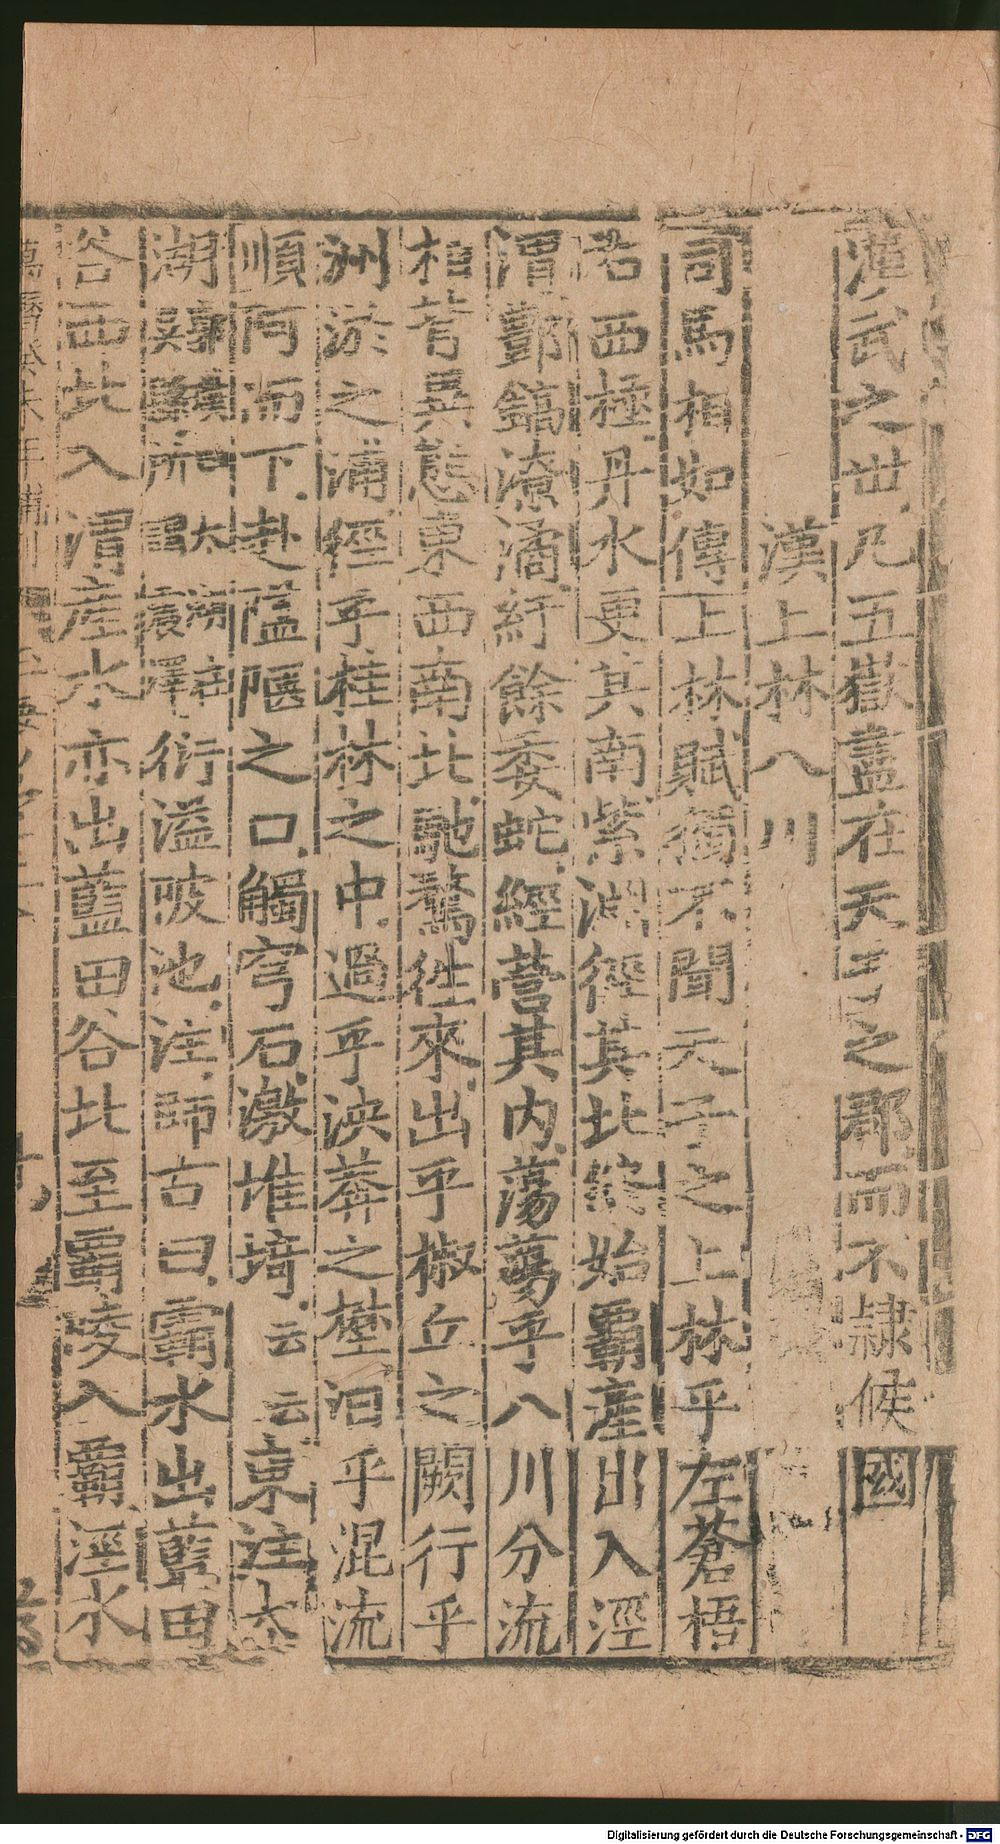 漢武之世凡五嶽盡在天子之郡而不隷候國
漢上林八川
司馬相如傳上林賦獨不聞天子之上林乎左蒼梧
右西極丹水更其南紫淵徑其北終始覇產出入涇
渭酆鎬潦潏紆餘委蛇經營其內蕩蕩乎八川分流
相背異態東西南北馳騖徃來出乎椒丘之闕行乎
洲淤之浦徑乎桂林之中過乎泱莽之壄汩乎混流
順阿而下赴隘陿之口觸穹石激堆埼云云東注太
湖
衍溢陂池注師古曰霸水出藍田
谷西北入渭產水亦出藍田谷北至覇陵入覇涇水
萬曆癸未年補刊
Digitalisierung gefördert durch die Deutsche Forschungsgemeinschaft - DFG